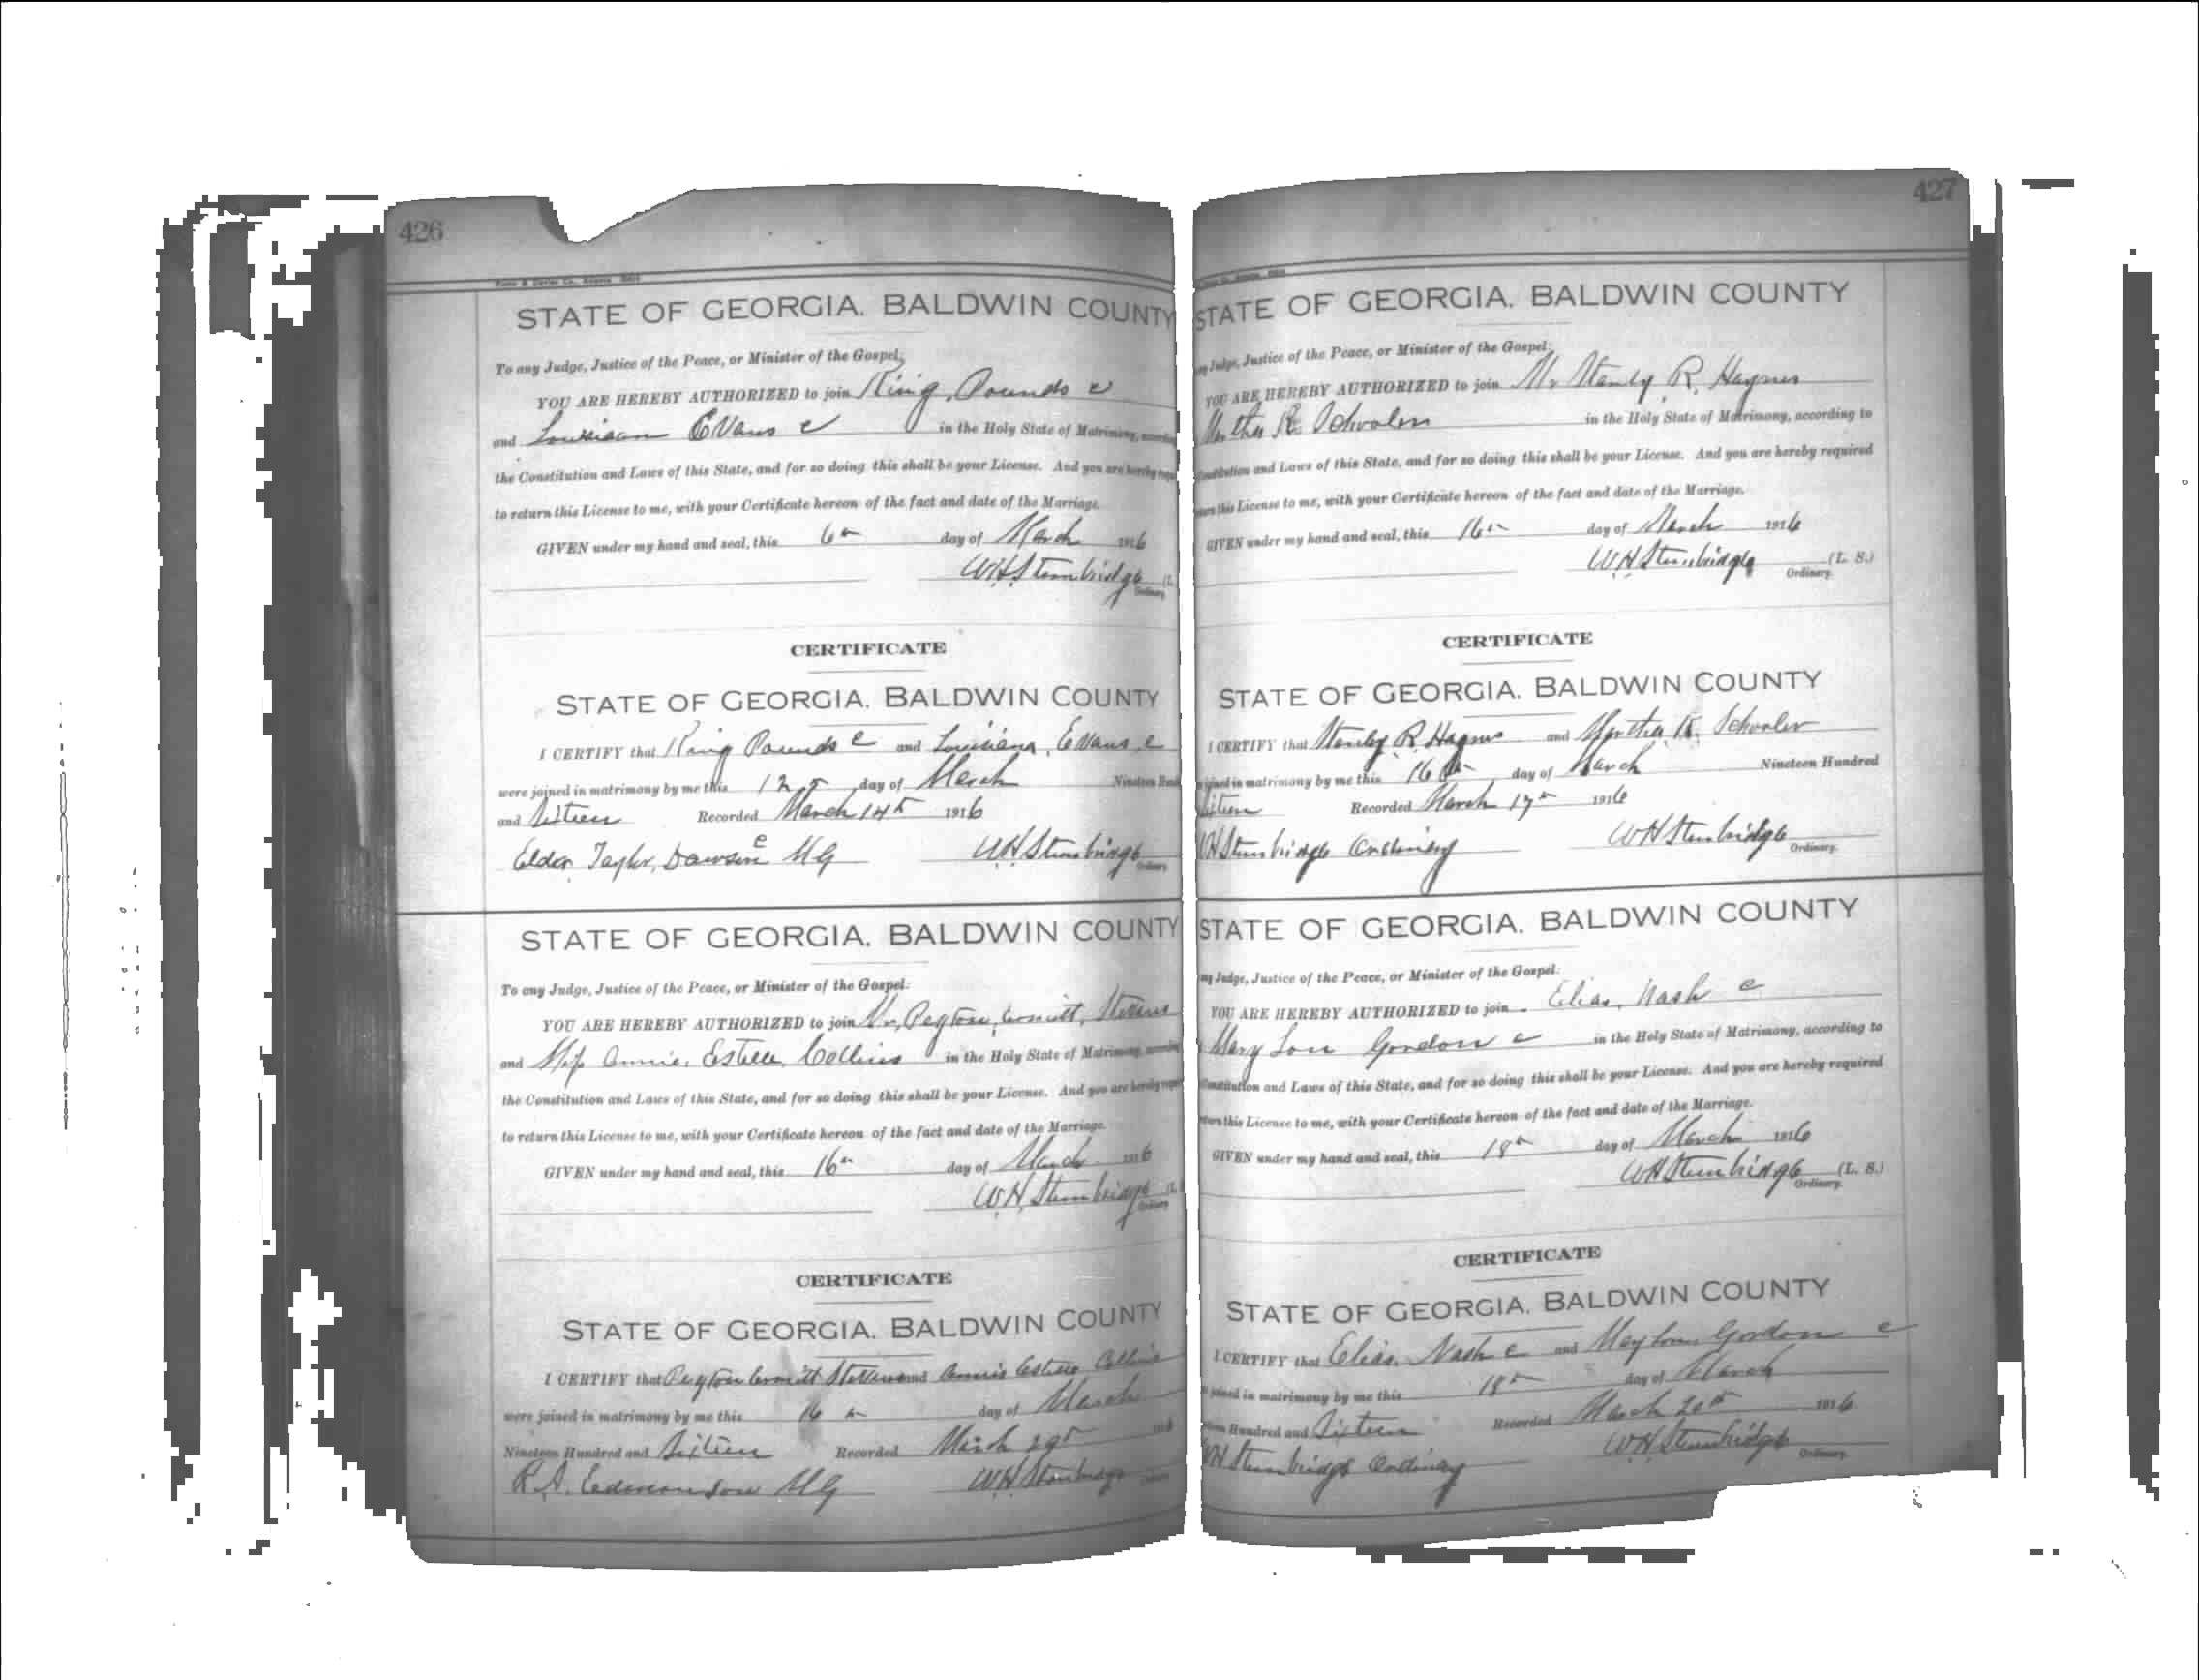 426
STATE OF GEORGIA. BALDWIN COUNTY
To any Judge, Justice of the Peace, or Minister of the Gospel;
YOU ARE HEREBY AUTHORIZED to join King Pounds c
and Evans c in the Holy State of Matrimony,
the Constitution and Laws of this State, and for so doing this shall be your License. And you are hereby
to return this License to me, with your Certificate hereon of the fact and date of the Marriage.
GIVEN under my hand and seal, this 6th day of March 1916
W.H. Stembridge (L.
Ordinary
CERTIFICATE
STATE OF GEORGIA. BALDWIN COUNTY
I CERTIFY that King Pounds c and Louisiana Evans c
were joined in matrimony by me this 12th day of March Nineteen
and Sixteen Recorded March 14th 1916
Elder Taylor Dawson c MG W.H. Stembridge
Ordinary
STATE OF GEORGIA. BALDWIN COUNTY
To any Judge, Justice of the Peace, or Minister of the Gospel:
YOU ARE HEREBY AUTHORIZED to join Mr Peyton
and Miss Annie Collins in the Holy State of Matrimony,
the Constitution and Laws of this State, and for so doing this shall be your License. And you are hereby
to return this License to me, with your Certificate hereon of the fact and date of the Marriage.
GIVEN under my hand and seal, this 16th day of March 1916
W.H. Stembridge (L.
Ordinary
CERTIFICATE
STATE OF GEORGIA. BALDWIN COUNTY
I CERTIFY that Peyton and Annie Collins
were joined in matrimony by me this 16th day of March
Nineteen Hundred and Sixteen Recorded March
R.A. Edmondson MG W.H. Stembridge
427
STATE OF GEORGIA. BALDWIN COUNTY
Judge, Justice of the Peace, or Minister of the Gospel:
YOU ARE HEREBY AUTHORIZED to join Mr Stanly R. Haynes
in the Holy State of Matrimony, according to
and Laws of this State, and for so doing this shall be your License. And you are hereby required
this License to me, with your Certificate hereon of the fact and date of the Marriage.
GIVEN under my hand and seal, this 16th day of March 1916
W.H. Stembridge (L. S.)
Ordinary.
CERTIFICATE
STATE OF GEORGIA. BALDWIN COUNTY
I CERTIFY that Stanley R. Haynes and Schooler
joined in matrimony by me this 16th day of March Nineteen Hundred
Sixteen Recorded March 17th 1916
WH Stembridge Ordinary W.H. Stembridge
Ordinary.
STATE OF GEORGIA. BALDWIN COUNTY
Judge, Justice of the Peace, or Minister of the Gospel:
YOU ARE HEREBY AUTHORIZED to join Elias Nash c
Mary Lou Gordon c in the Holy State of Matrimony, according to
Constitution and Laws of this State, and for so doing this shall be your License. And you are hereby required
this License to me, with your Certificate hereon of the fact and date of the Marriage.
GIVEN under my hand and seal, this 18th day of March 1916
W.H. Stembridge (L. S.)
Ordinary.
CERTIFICATE
STATE OF GEORGIA. BALDWIN COUNTY
I CERTIFY that Elias Nash c and Mary Lou Gordon c
joined in matrimony by me this 18th day of March
Hundred and Sixteen Recorded March 20th 1916
WH Stembridge Ordinary W.H. Stembridge
Ordinary.